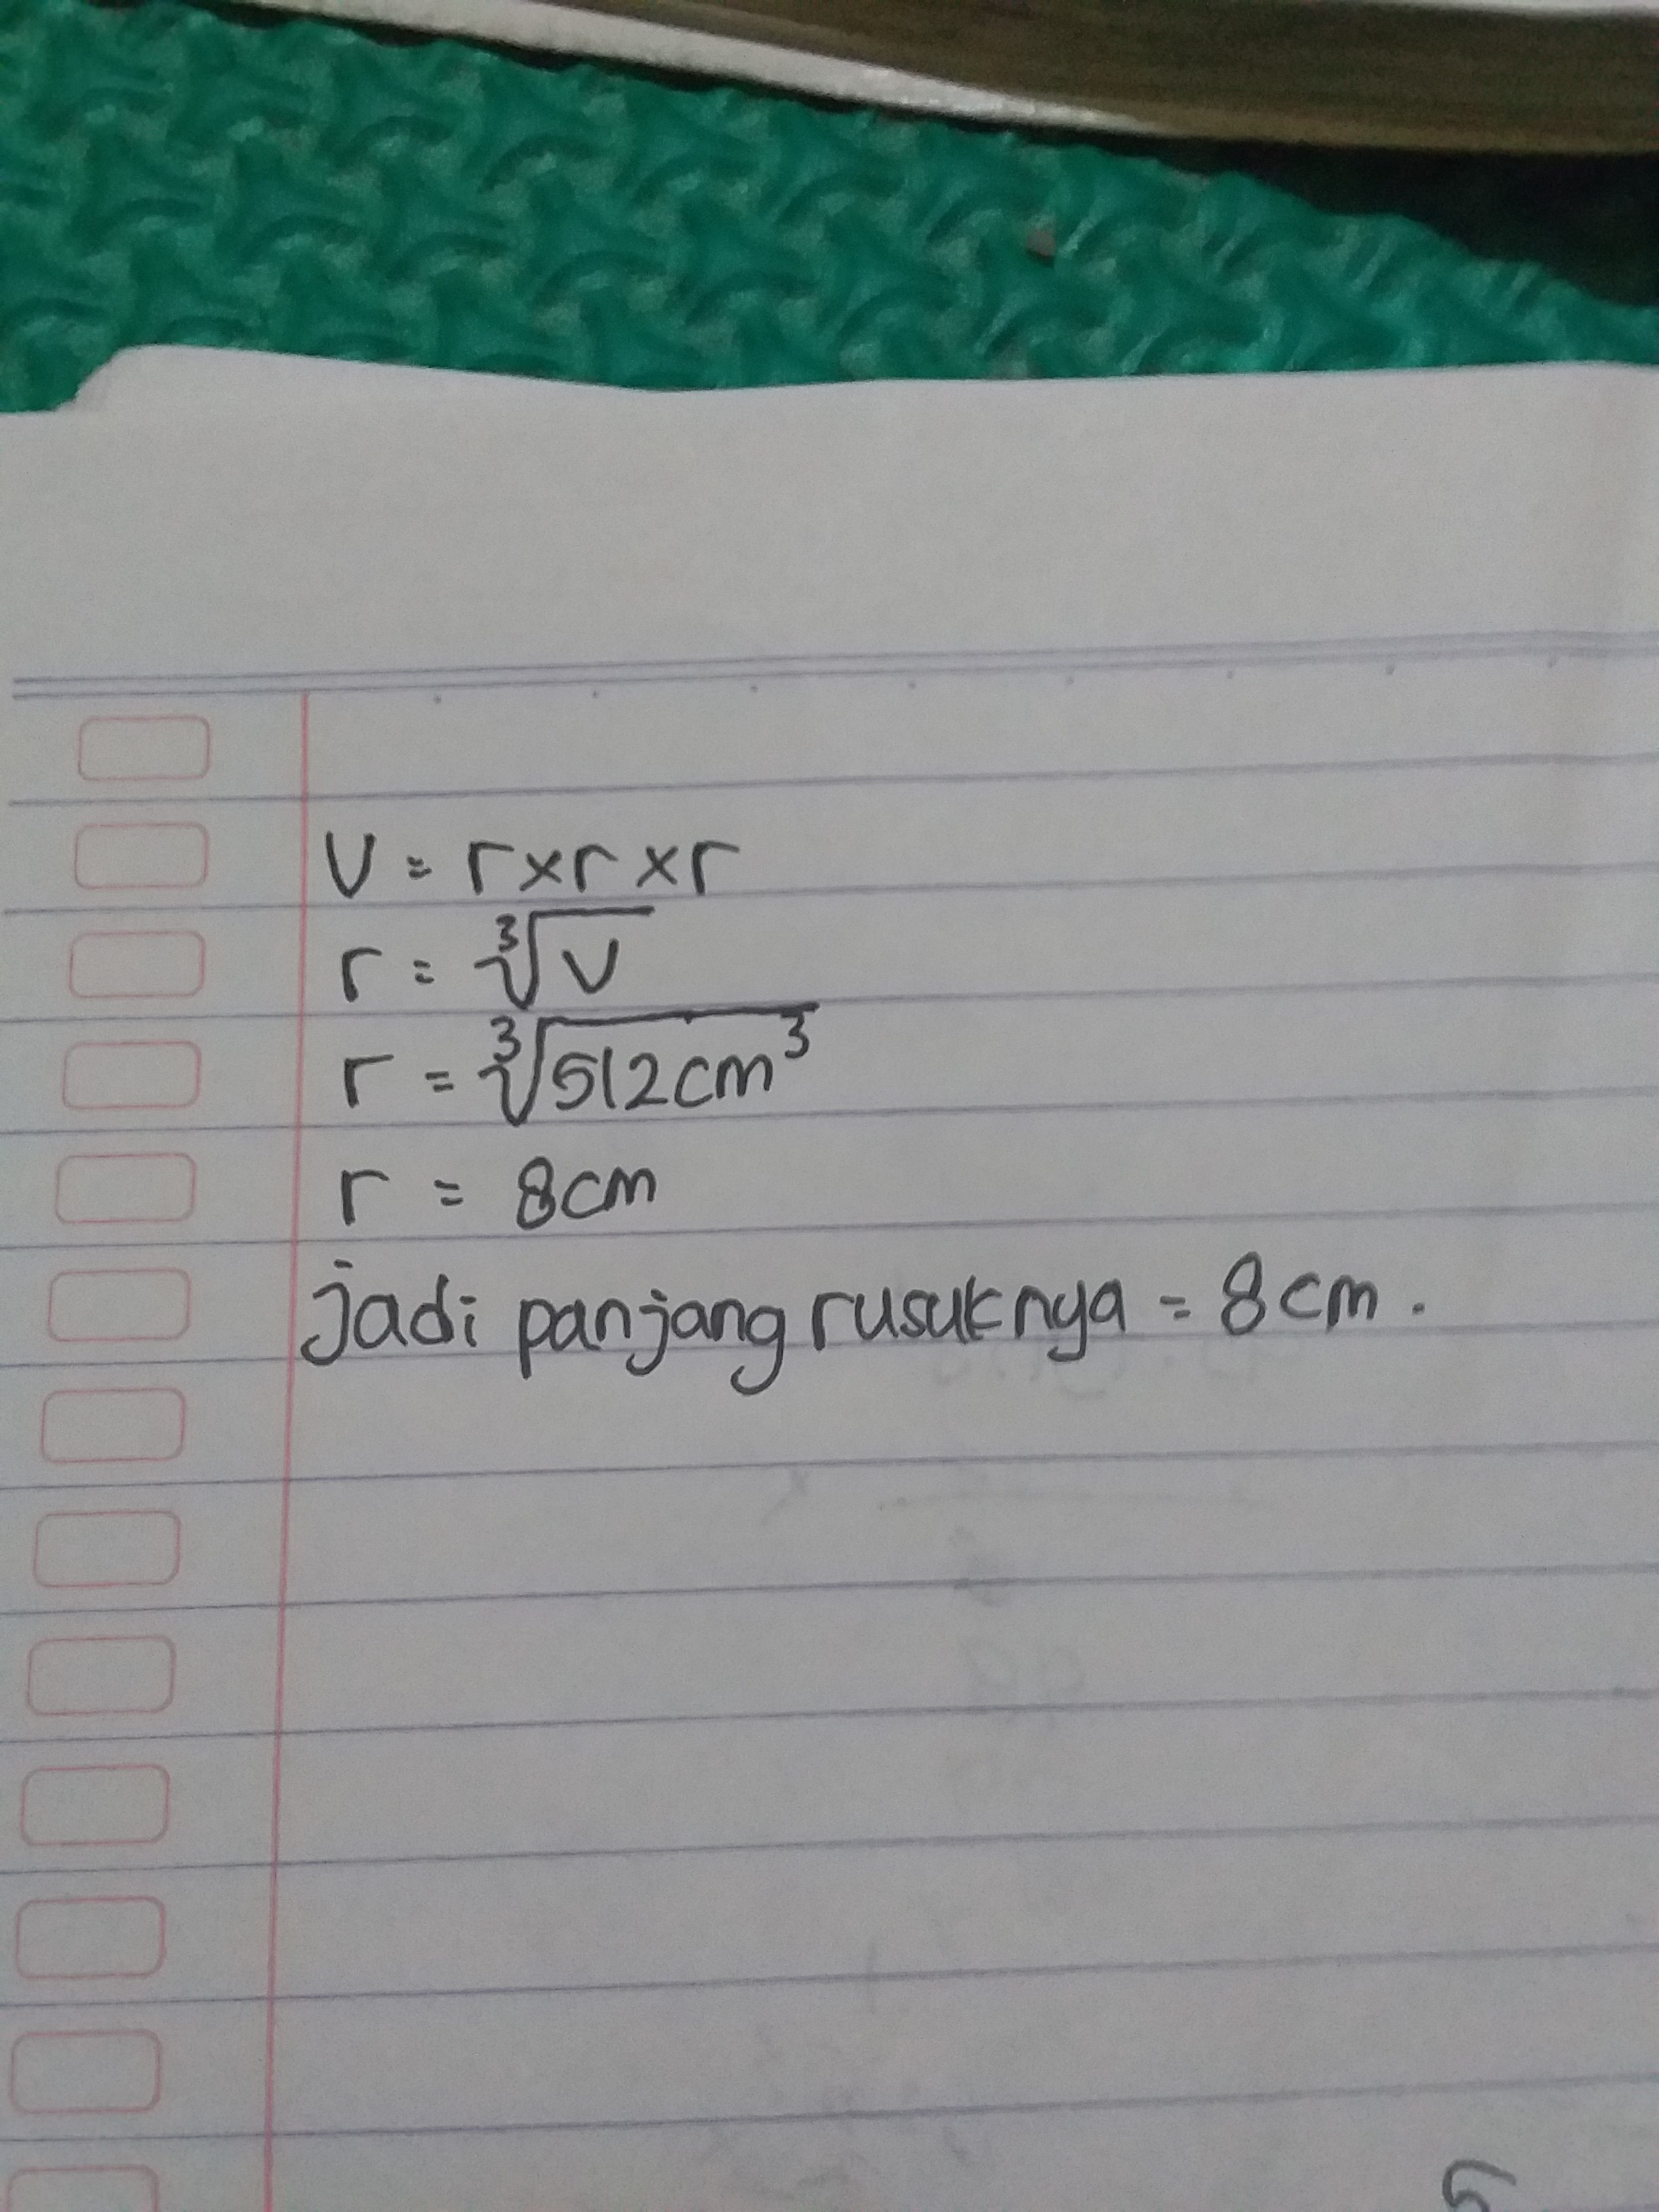 V = r x r x r
r = ³√V
r = ³√512cm³
r = 8cm
jadi panjang rusuknya = 8cm.